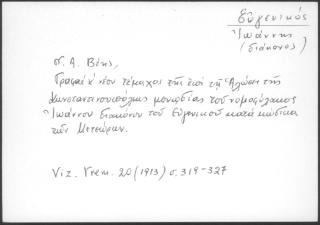 Εὐγενικός
Ἰωάννης
(διάκονος)
Ν. Α. Βέης,
Γραφαὶ κ' νέον τέμαχος τῆς ἐπὶ τῇ Ἁλώσει τῆς
Κωνσταντινουπόλεως μονῳδίας τοῦ νομοφύλακος
Ἰωάννου διακόνου τοῦ Εὐγενικοῦ κατὰ κώδικα
τῶν Μετεώρων.
Viz. Vrem. 20 (1913) σ. 319-327